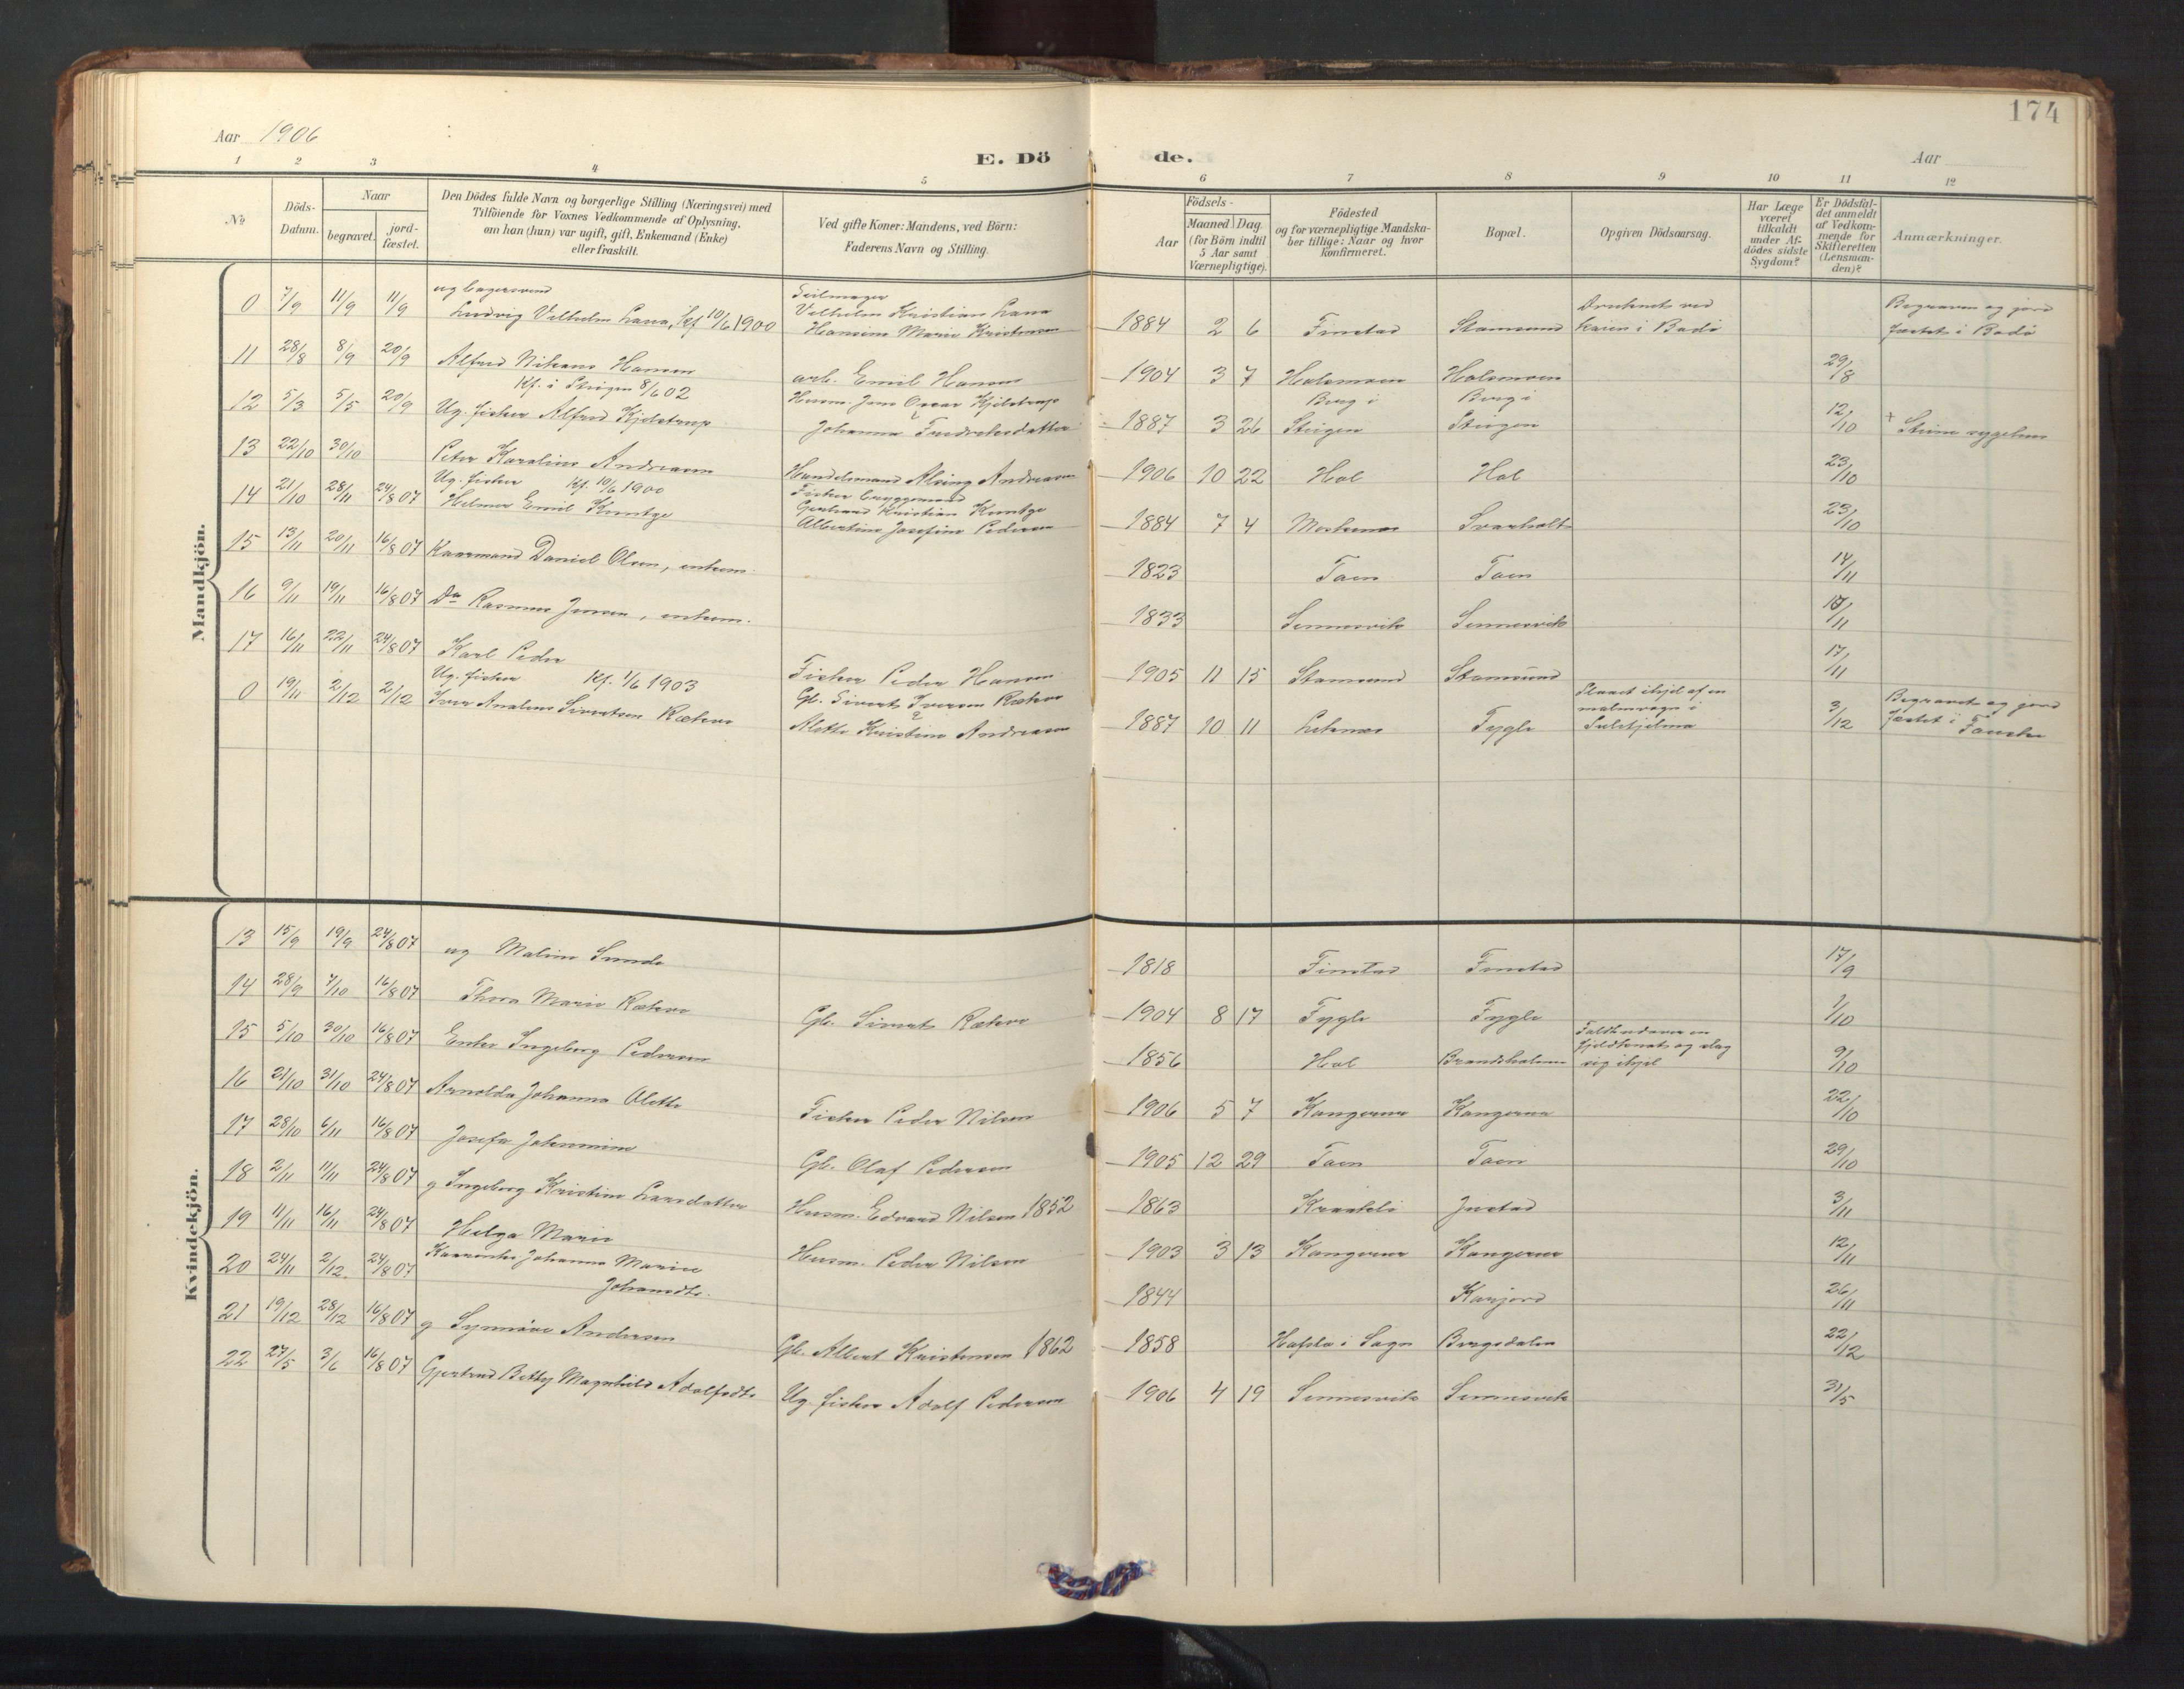 174
Aar 1906
E. Dö
de.
Aar
1 2 3 4 5 6 7 8 9 10 11 12
No
Döds-Datum.
Naar
begravet.
jord-fæstet.
Den Dödes fulde Navn og borgerlige Stilling (Næringsvei) med
Tilföiende for Voxnes Vedkommende af Oplysning,
om han (hun) var ugift, gift, Enkemand (Enke)
eller fraskilt.
Ved gifte Koner: Mandens, ved Börn:
Faderens Navn og Stilling.
Födsels-
Aar
Maaned Dag
(for Börn indtil
5 Aar samt
Værnepligtige).
Födested
og for værnepligtige Mandska-
ber tillige: Naar og hvor
konfirmeret.
Bopæl.
Opgiven Dödsaarsag.
Har Læge
været
tilkaldt
under Af-
dödes sidste
Sygdom?
Er Dödsfal-
det anmeldt
af Vedkom-
mende for
Skifteretten
(Lensman-
den)?
Anmærkninger.
Mandkjön.
0 7/9 11/9 11/9 ug Ludvig Vilhelm Lana, kf 10/6 1900 Vilhelm Kristian Lana Hansine Marie Kristensen 1884 2 6 Finstad Stamsund Druknet ved Kaien i Bodö Begraven og jordfæstet i Bodö
11 28/8 8/9 20/9 Alfred Nikans Hansen arb. Emil Hansen 1904 3 7 Holsmoen Holsmoen 29/8
12 5/3 5/5 20/9 Kf. i Steigen 8/6 02 Ug. fisker Alfred Kjelstrup Husm. Jens Oscar Kjelstrup Johanna Fredriksdatter 1887 3 26 Borg i Steigen Borg i Steigen 12/10 + Steine sygehus
13 22/10 30/10 Peter Karelius Andreasen Handelsmand Alsing Andreasen 1906 10 22 Hol Hol 23/10
14 21/10 28/11 24/8 07 Ug. fisker Kf. 10/6 1900 Helmer Emil Kuntge Fisker Gerhard Kristian Kuntge Albertine Josefine Pedersen 1884 7 4 Moskenes Svarholt 23/10
15 13/11 20/11 16/8 07 Kaarmand Daniel Olsen, enkem. 1823 Taen Taen 14/11
16 9/11 19/11 16/8 07 Do Rasmus Jensen, enkem. 1833 Sennesvik Sennesvik 11
17 16/11 22/11 24/8 07 Karl Peder Fisker Peder Hansen 1905 11 15 Stamsund Stamsund 17/11
0 19/11 2/12 2/12 Ug. fisker Kf. 1/6 1903 Iver Analens Sivertsen Rækne Gb. Sivert Iversen Rækne Alette Kristine Andreasen 1887 10 11 Leknes Fygle Slaaet ihjel af en malmvogn i Sulitjelma 3/12 Begravet og jordfæstet i Fauske
Kvindekjön.
13 15/9 19/9 24/8 07 ug Maline Sunde 1818 Finstad Finstad 17/9
14 28/9 7/10 16/8 07 Thora Marie Rækne Gb. Sivert Rækne 1904 8 17 Fygle Fygle 1/10
15 5/10 30/10 16/8 07 Enke Ingeborg Pedersen 1856 Hol Brandsholmen Faldt udover en fjeldknat og slog sig ihjel 9/10
16 21/10 31/10 24/8 07 Arnolda Johanna Olette Fisker Peder Nilsen 1906 5 7 Kangerne Kangerne 22/10
17 28/10 6/11 16/8 07 Josefa Johannine Gb. Olaf Pedersen 1905 12 29 Taen Taen 29/10
18 2/11 11/11 24/8 07 g Ingeborg Kristine Larsdatter Husm. Edvard Nilsen 1852 1863 Justad 3/11
19 11/11 16/11 24/8 07 Helga Marie Husm. Peder Nilsen 1903 3 13 Kangerne Kangerne 12/11
20 24/11 2/12 24/8 07 Johanna Marie Johansdtr. 1844 26/11
21 19/12 28/12 16/8 07 g Synnöve Andersen Gb. Albert Kristensen 1862 1858 Hafslo i Sogn Borgsdalen 22/12
22 27/5 3/6 16/8 07 Gjertrud Betty Magnhild Adolfsdtr Ug. fisker Adolf Pedersen 1906 4 19 Sennesvik Sennesvik 31/5